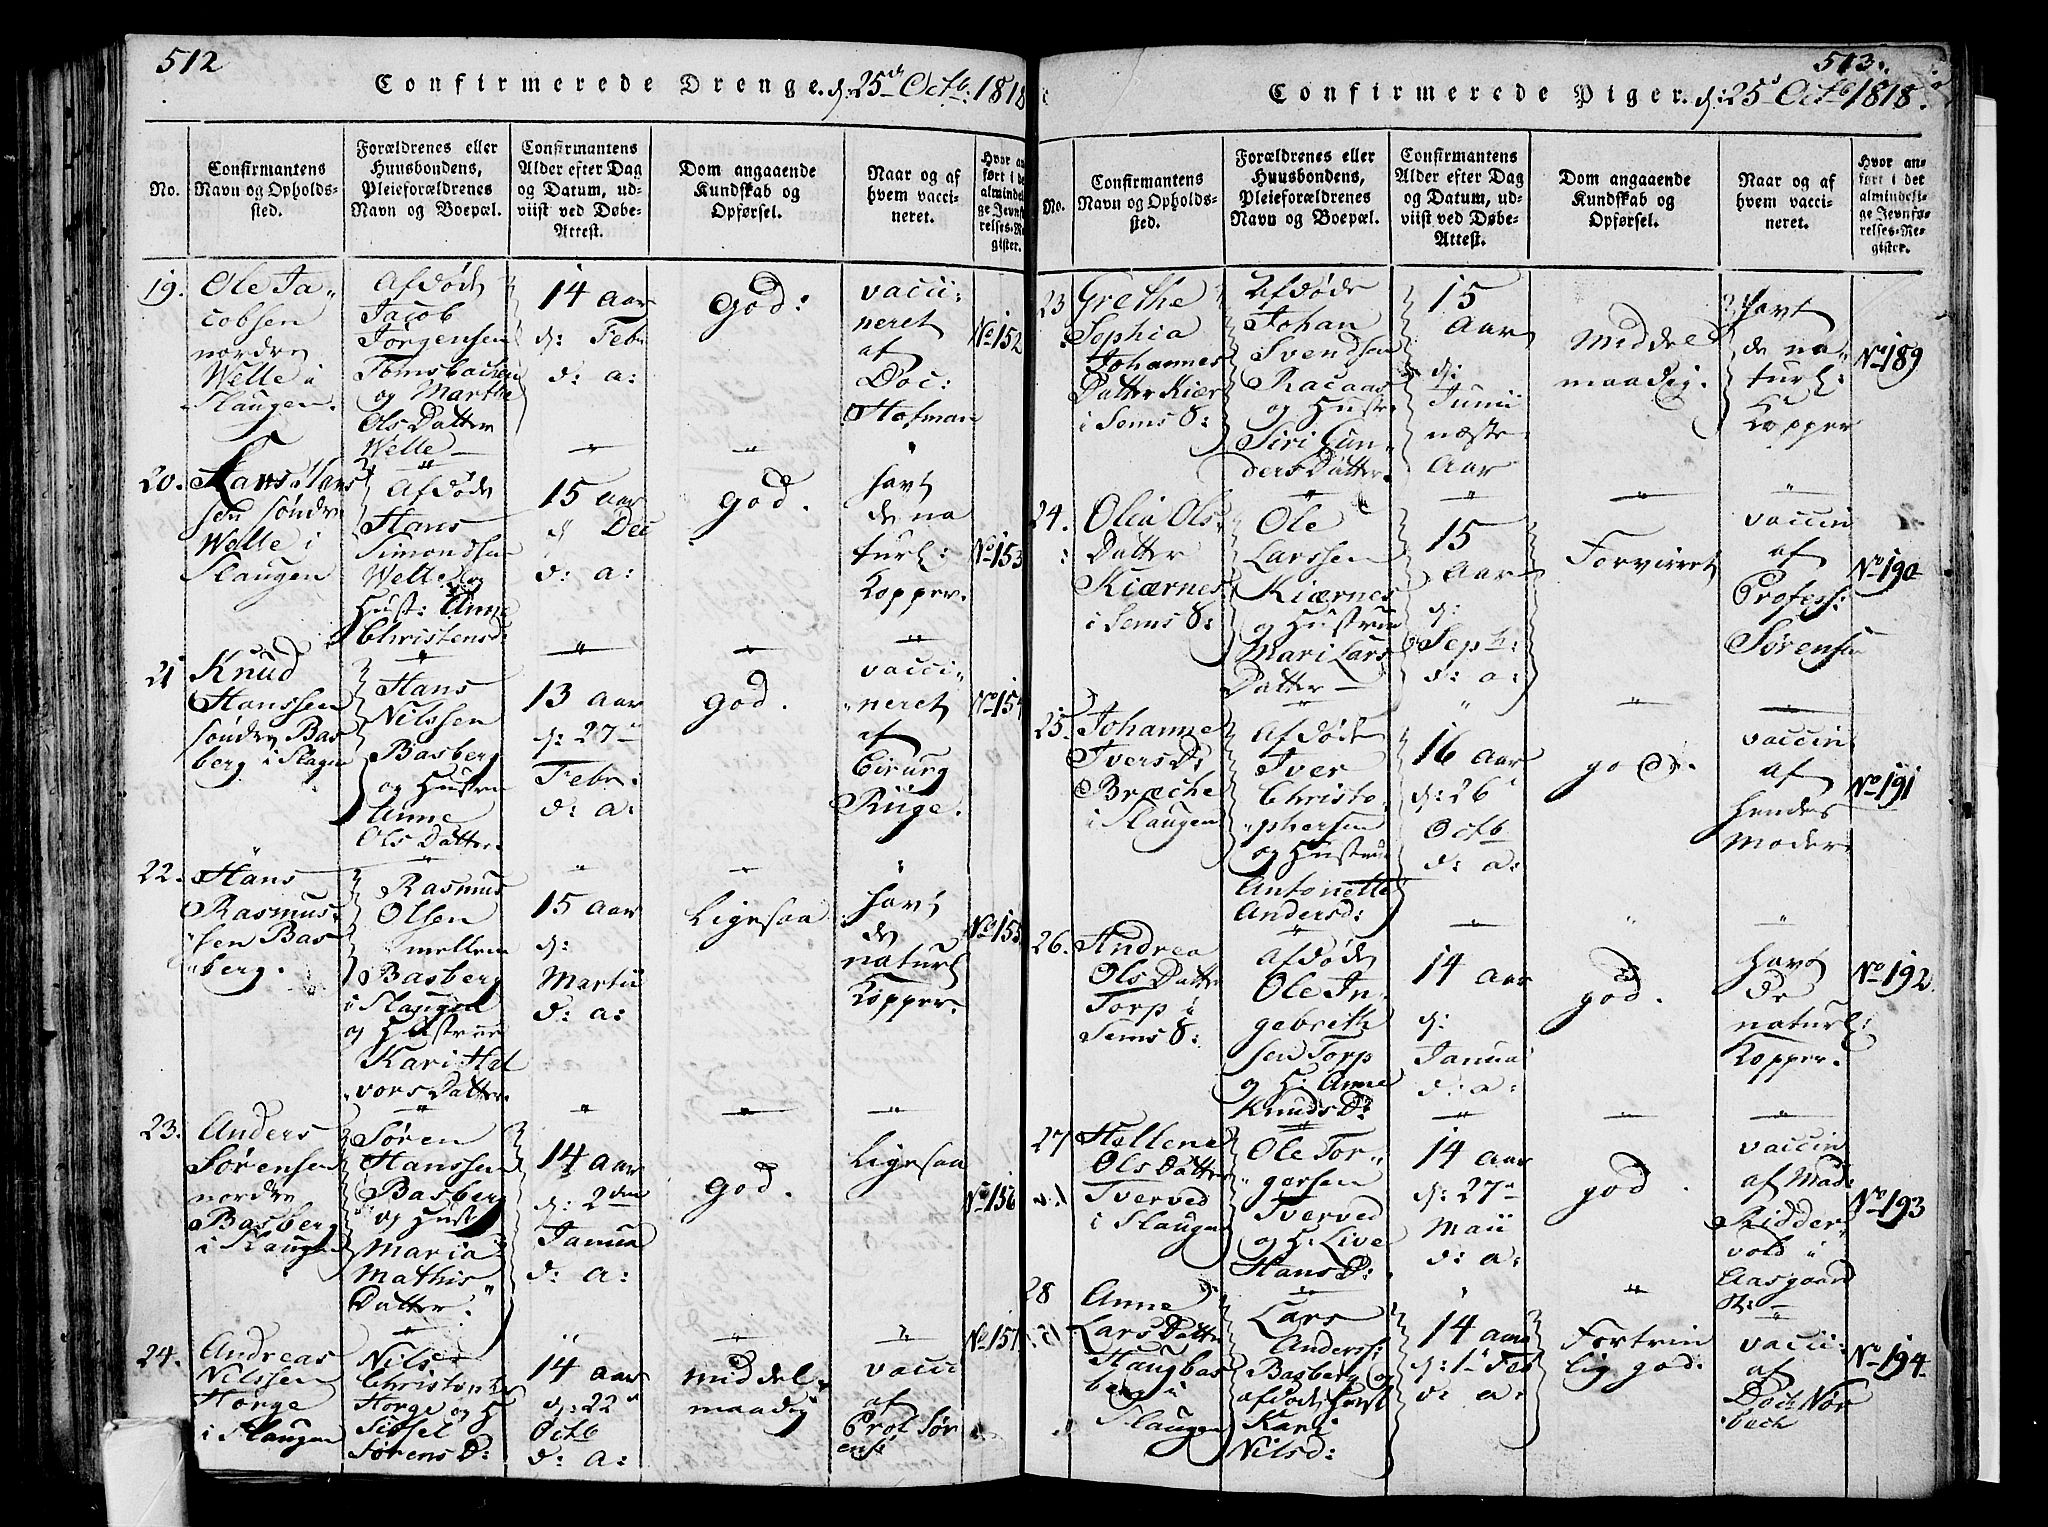 512
Confirmerede Drenge. d: 25d Octb: 1818
No.
Confirmantens
Navn og Opholds-
sted.
Forældrenes eller
Huusbondens,
Pleieforældrenes
Navn og Boepæl.
Confirmantens
Alder efter Dag
og Datum, ud-
viist ved Døbe-
Attest.
Dom angaaende
Kundskab og
Opførsel.
Naar og af
hvem vacci-
neret.
Hvor an
ført i de
almindel
ge Jevnfø
relses-Re
gister.
19.
Ole Ja-
cobsen
nordre
Welle i
Slaugen.
Afdøde
Jacob
Jörgensen
Tomsbachen
og Marthe
Ols Datter
Welle
14 Aar
d: Febr
d: a:
God:
vacci:
neret
af
Doc:
Hofman
No 152
20.
Hans Hans
sen søndre
Welle i
Slaugen
Afdøde
Hans
Simondsen
Welle og
Hust: Anne
Christensd:
15 aar
d Dec
d: a:
god.
havt
de na
turl:
Kopper.
No 153
21
Knud
Hanssen
søndre Bas
berg i Slagen
Hans
Nilssen
Basberg
og Hustru
Anne
Ols Datter.
13 aar
d: 27
Febr.
d: a:
god.
vacci-
neret
af
Cirurg
Riige.
No 154
22.
Hans
Rasmus-
sen Bas
berg.
Rasmus
Olsen
mellem
Basberg
i Slaugen
og Hustrue
Kari Hal
vors Datter.
15 aar
d:
Martii
d: a:
Ligesaa
havt
de
naturl
Kopper.
No 155
23.
Anders
Sørensen
nordre
Basberg
i Slaugen
Søren
Hanssen
Basberg
og Hust
Maria
Mathis
Datter.
14 aar
d: 2den
Janua
d: a:
god.
Ligesaa
No 156
24.
Andreas
Nilssen
Horge
i Slaugen
Nils
Christophers
Horge og H
Sissel
Sørens D:
14 aar
d: 22d
Octb
d: a:
middel-
maadig
vacci
af
Prof Sør
ens
No 157
513.
Confirmerede Piger. d: 25d Octb 1818.
No.
Confirmantens
Navn og Opholds-
sted.
Forældrenes eller
Huusbondens,
Pleieforældrenes
Navn og Boepæl.
Confirmantens
Alder efter Dag
og Datum, ud-
viist ved Døbe-
Attest.
Dom angaaende
Kundskab og
Opførsel.
Naar og af
hvem vacci-
neret.
Hvor an-
ført i det
almindeli-
ge Jevnfø-
relses-Re-
gister.
23
Grethe
Sophia
Johannes
Datter Kiær
i Sems S:
Afdøde
Johan
Svendsen
Racaas
og Hustr.
Siri Gun-
ders Datter.
15
Aar
d:
Junii
næste
Aar
Middel
maadig.
Havt
de na-
turl:
Kopper
No 189
24.
Olea Ols
Datter
Kiærnes
i Sems S:
Ole
Larssen
Kiærnes
og Hustrue
Mari Lars
Datter
15
Aar
d:
Septb:
d: a:
Forvirret
vaccin
af
Profess:
Sørensen
No 190
25.
Johanne
Ivers D:
Bræche
i Slaugen
Afdøde
Iver
Christo-
phersen
og Hustrue
Antonette
Andersd:
16 aar
d: 26d
Octb
d: a:
god.
vaccin
af
hendes
Moder.
No 191
26.
Andrea
Ols Datter
Torp i
Sems S:
Afdøde
Ole In-
gebreth
sen Torp
og H: Anne
Knuds D:
14 aar
d:
Januai
d: a:
god.
Havt
de
naturl:
Kopper.
No 192.
27
Hellene
Ols Datter
Tverved
i Slaugen
Ole Tor-
gersen
Tverved
og H: Live
Hans D:
14 aar
d: 27
Maii
d: a:
god.
vaccin
af Mad:
Ridder
vold i
Aasgaard
No 193
28
Anne
Lars Datter
Haugbas
berg i
Slaugen
Lars
Anderss:
Basberg og
afdøde Hust
Kari
Nilsd:
14 aar
d: 1 Feb
d: a:
Fortrin
lig god.
vacci:
af
Doct Nør
bech
No 194